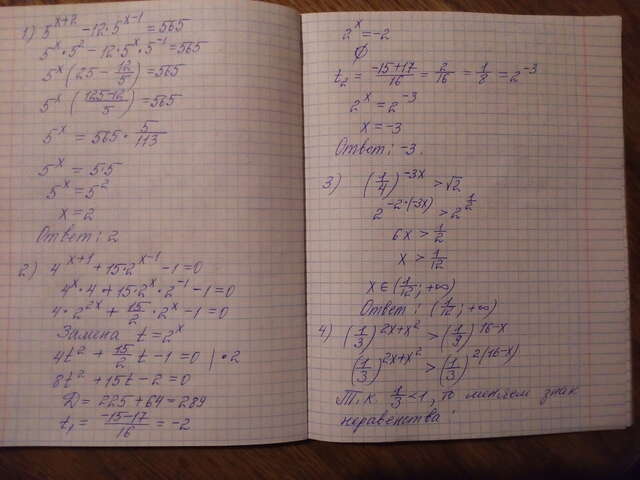 1) 5^(x+2) - 12·5^(x-1) = 565
5^x·5^2 - 12·5^x·5^(-1) = 565
5^x(25 - 12/5) = 565
5^x((125-12)/5) = 565
5^x = 565·5/113
5^x = 5·5
5^x = 5^2
x = 2
Ответ: 2
2) 4^(x+1) + 15·2^(x-1) - 1 = 0
4^x·4 + 15·2^x·2^(-1) - 1 = 0
4·2^(2x) + 15/2·2^x - 1 = 0
Замена t = 2^x
4t^2 + 15/2 t - 1 = 0 |·2
8t^2 + 15t - 2 = 0
D = 225 + 64 = 289
t₁ = (-15-17)/16 = -2
2^x = -2
∅
t₂ = (-15+17)/16 = 2/16 = 1/8 = 2^(-3)
2^x = 2^(-3)
x = -3
Ответ: -3.
3) (1/4)^(-3x) > √2
2^(-2·(-3x)) > 2^(1/2)
6x > 1/2
x > 1/12
x ∈ (1/12; +∞)
Ответ: (1/12; +∞)
4) (1/3)^(2x+x^2) > (1/9)^(16-x)
(1/3)^(2x+x^2) > (1/3)^(2(16-x))
Т.к. 1/3 < 1, то меняем знак
неравенства: